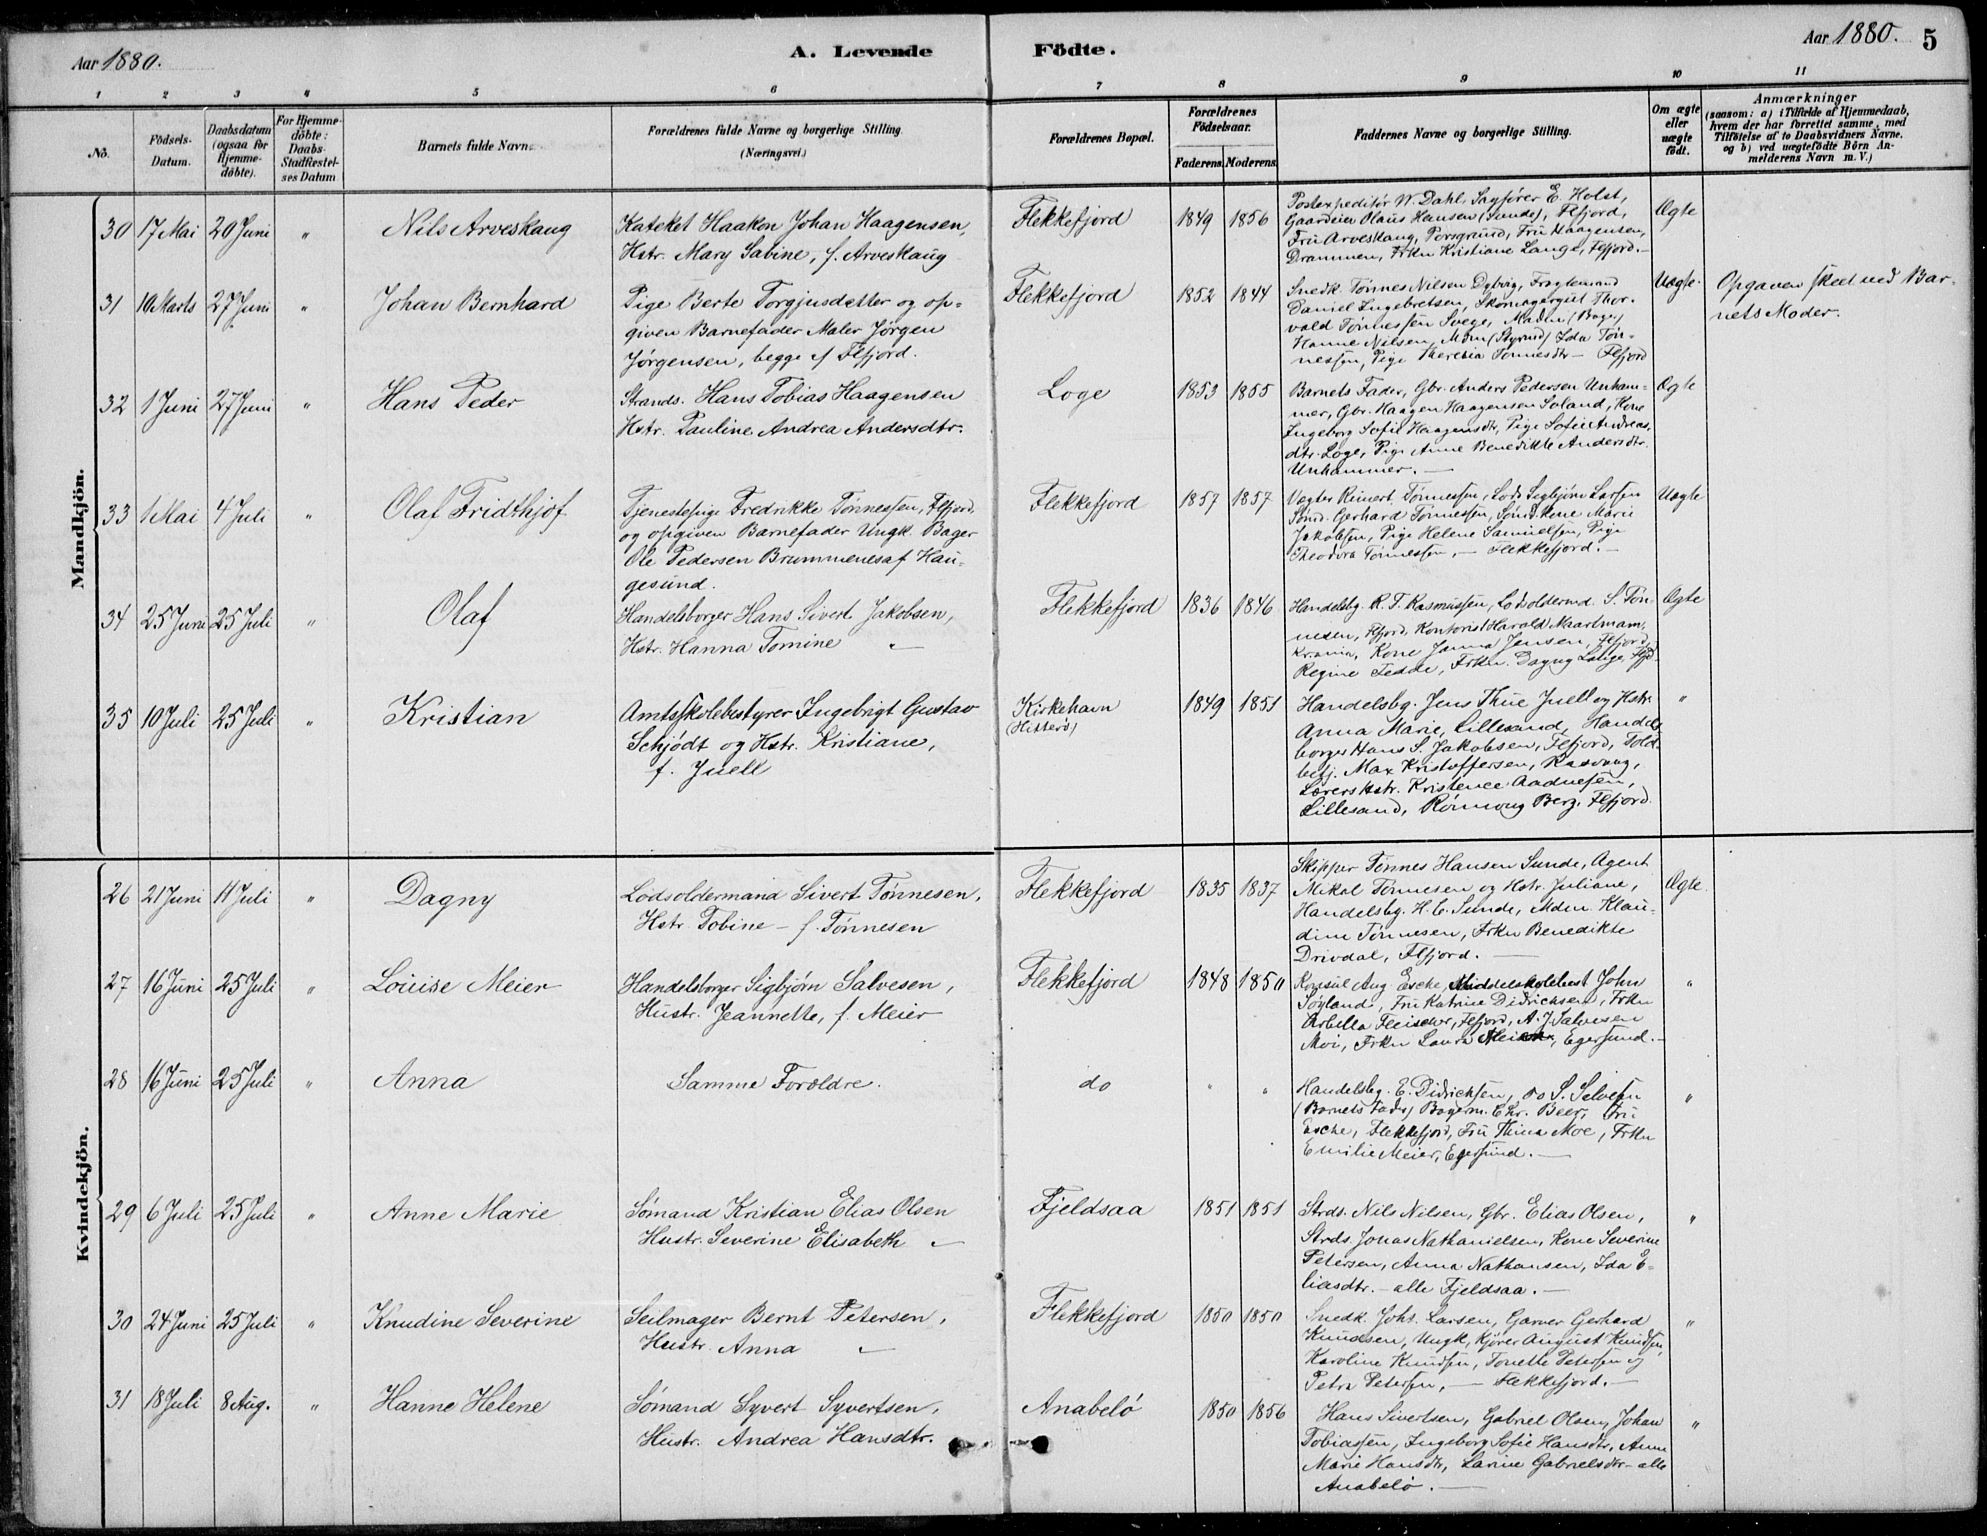 Aar 1880.
A. Levende Födte.
Aar 1880. 5
1 2 3 4 5 6 7 8 9 10 11
No.
Födsels-Datum.
Daabsdatum (ogsaa for Hjemme-döbte).
For Hjemme-döbte: Daabs-Stadfæstel-ses Datum
Barnets fulde Navn.
Forældrenes fulde Navne og borgerlige Stilling.
(Næringsvei.)
Forældrenes Bopæl.
Forældrenes Födselsaar.
Faderens. Moderens.
Faddernes Navne og borgerlige Stilling.
Om ægte eller uægte födt.
Anmærkninger
(saasom: a) i Tilfælde af Hjemmedaab, hvem der har forrettet samme, med Tilföielse af to Daabsvidners Navne, og b) ved uægtefödte Börn An-melderens Navn m. V.)
Mandkjön.
30 17 Mai 20 Juni " Nils Arveskaug
Kateket Haakon Johan Haagensen,
Hstr. Mary Sabine, f. Arveskaug
Flekkefjord 1849 1856
Postexpeditør W. Dahl, Sagfører E. Holst,
Gaardeier Olaus Hansen (Sunde), Flfjord,
Fru Arveskaug, Porsgrund, Fru Haagensen,
Drammen, Frkn Kristiane Lange, Flfjord.
Ægte
31 10 Marts 27 Juni " Johan Bernhard
Pige Berte Torgjusdatter og op-
given Barnefader Maler Jørgen
Jørgensen, begge af Flfjord.
Flekkefjord 1852 1844
Snedk. Tønnes Nilsen Dybvig, Fragtemand
Daniel Ingebretsen, Skomagergut Thor-
vald Tønnessen Svege, Madm (Bager)
Hanne Nilsen, Mdm (Styrmd) Ida Tøn-
nessen, Pige Theresia Tønnesdtr - Flfjord
Uægte.
Opgaven skeet ved Bar-
nets Moder.
32 1 Juni 27 Juni " Hans Peder
Strands. Hans Tobias Haagensen
Hstr. Pauline Andrea Andersdtr.
Loge 1853 1855
Barnets Fader, Gbr. Anders Pedersen Unham-
mer, Gbr. Haagen Haagensen Soland, Kone
Ingeborg Sofie Haagensdtr, Pige Sofie Andreas
dtr. Loge, Pige Anne Benedikte Andersdtr.
Unhammer.
Ægte
33 1 Mai 4 Juli " Olaf Fridthjof
Tjenestepige Fredrikke Tønnessen, Flfjord,
og opgiven Barnefader Ungk. Bager
Ole Pedersen Brummenes af Hau-
gesund.
Flekkefjord 1857 1857
Vægter Reinert Tønnessen, Lods Sigbjørn Larsen
Sømd. Gerhard Tønnessen, Sømds Kone Marie
Jakobsen, Pige Helene Samuelsen, Pige
Theodora Tønnessen, - Flekkefjord.
Uægte
34 25 Juni 25 Juli " Olaf
Handelsborger Hans Sivert Jakobsen,
Hstr. Hanna Tomine "
Flekkefjord 1836 1846
Handelsbg. R. T. Rasmussen, Lodsoldermd. S. Tøn-
nesen, Flfjord, Kontorist Harald Maartmann,
Krania, Kone Janna Jensen, Flfjord,
Regine Tedde, Frkn. Dagny Lange, Flfjd.
Ægte
35 10 Juli 25 Juli " Kristian
Amtsskolebestyrer Ingebrigt Gustav
Schjødt og Hstr. Kristiane,
f. Juell
Kirkehavn
(Hitterø)
1849 1851
Handelsbg. Jens Thue Juell og Hstr.
Anna Marie, Lillesand, Handels-
borger Hans S. Jakobsen, Flfjord, Told-
betj. Max Kristoffersen, Rasvaag,
Lærers Hstr. Kristence Aadnesen,
Lillesand, Rønnaug Berg, Flfjord.
"
Kvindekjön.
26 21 Juni 11 Juli " Dagny
Lodsoldermand Sivert Tønnesen,
Hstr. Tobine - f. Tønnesen
Flekkefjord 1835 1837
Skipper Tønnes Hansen Sunde, Agent
Mikal Tønnesen og Hstr. Juliane,
Handelsbg. H. E. Sunde, Mdm Klau-
dine Tønnesen, Frkn Benedikte
Drivdal, Flfjord.
Ægte.
27 16 Juni 25 Juli " Louise Meier
Handelsborger Sigbjørn Salvesen,
Hustr. Jeannette, f. Meier
Flekkefjord 1848 1850
Konsul Aug. Esche, Middelskolebest John
Søyland, Fru Katrine Didrichsen, Frkn
Arbella Fleischer, Flfjord, A. J. Salvesen
Moi, Frkn Laura Meier, Egersund.
"
28 16 Juni 25 Juli " Anna
Samme Forældre.
do " "
Handelsbg. E. Didrichsen, do S. Salvesen
(Barnets Fader) Bagerm. Chr. Beer, Fru
Esche, Flekkefjord, Fru Thina Moe, Frkn
Emilie Meier, Egersund.
"
29 6 Juli 25 Juli " Anne Marie
Sømand Kristian Elias Olsen
Hustr. Severine Elisabeth "
Fjeldsaa 1851 1851
Strds. Nils Nilsen, Gbr. Elias Olsen,
Strds. Jonas Nathanielsen, Kone Severine
Petersen, Anna Nathansen, Ida E-
liasdtr. - alle Fjeldsaa.
"
30 24 Juni 25 Juli " Knudine Severine
Seilmager Bernt Petersen,
Hustr. Anna "
Flekkefjord 1850 1850
Snedk. Johs. Larsen, Garver Gerhard
Knudsen, Ungk. Kjører August Knudsen,
Karoline Knudsen, Tonette Petersen og
Petra Petersen, - Flekkefjord.
"
31 18 Juli 8 Aug. " Hanne Helene
Sømand Syvert Syvertsen,
Hustr. Andrea Hansdtr.
Anabelø 1850 1856
Hans Sivertsen, Gabriel Olsen, Johan
Tobiassen, Ingeborg Sofie Hansdtr, Anne
Marie Hansdtr, Larine Gabrielsdtr - alle
Anabelø.
"